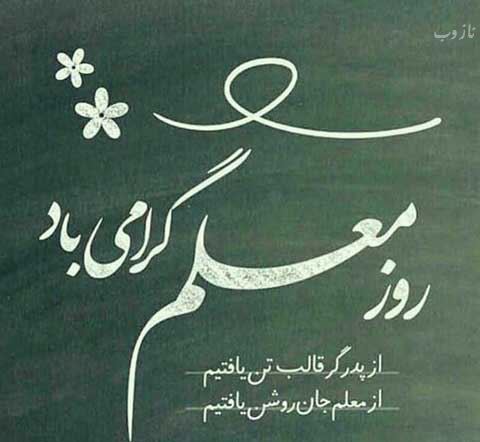 ناز وب
روز معلم گرامی باد
از پدر گر قالب تن یافتیم
از معلم جان روشن یافتیم